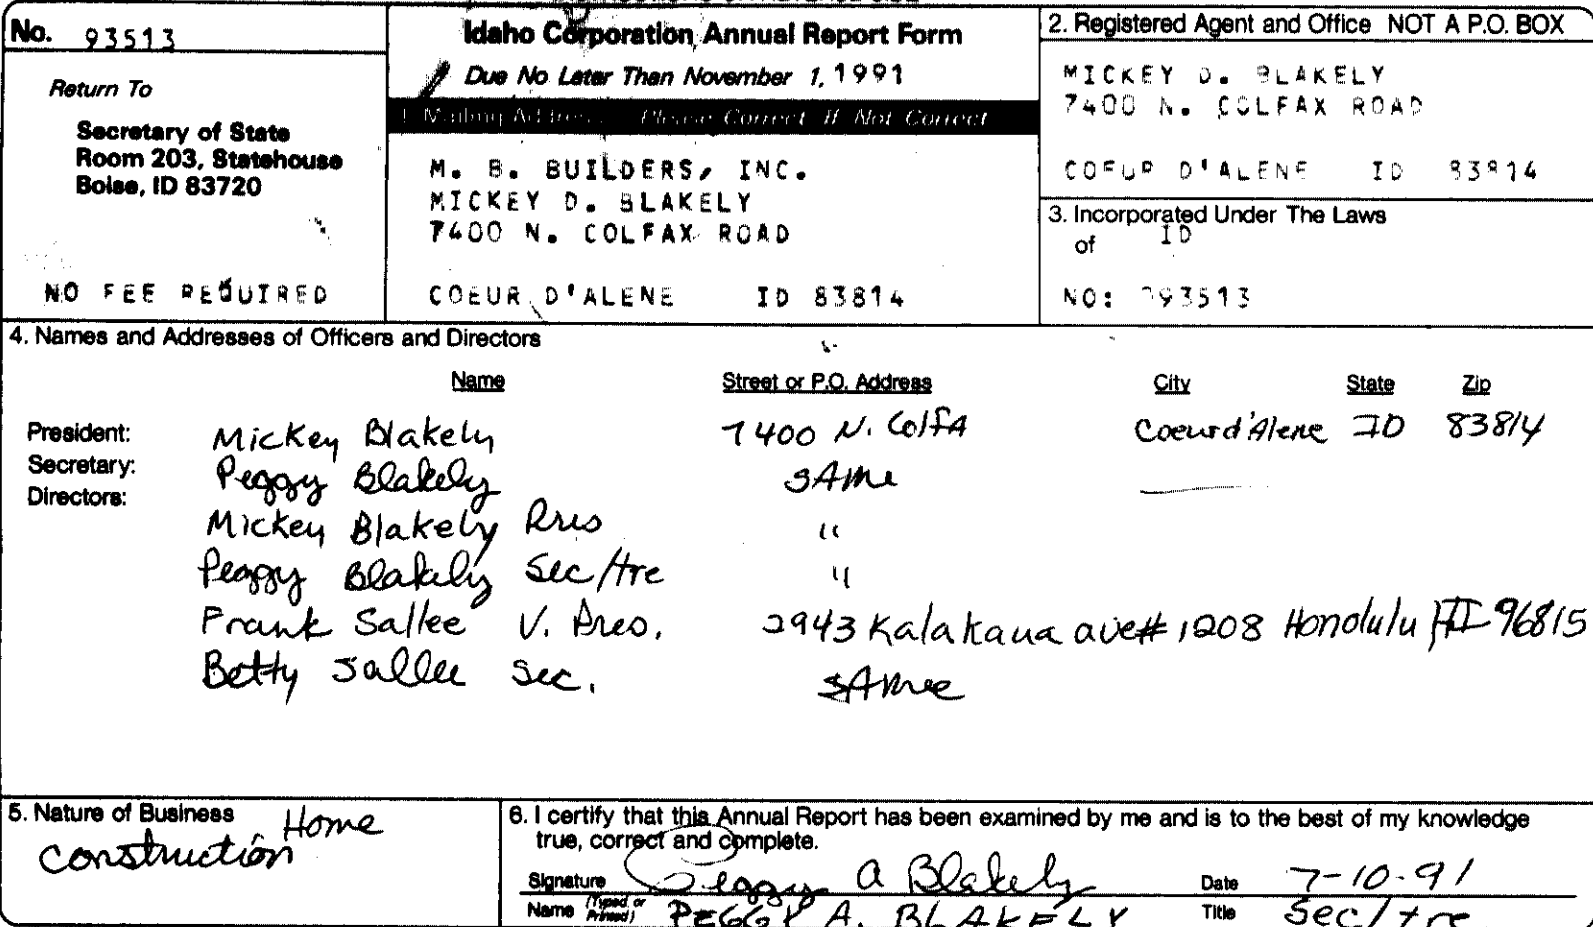 No. 93513
Return To
Secretary of State
Room 203, Statehouse
Boise, ID 83720
NO FEE REQUIRED
Idaho Corporation Annual Report Form
Due No Later Than November 1, 1991
1 Mailing Address Please Correct If Not Correct
M. B. BUILDERS, INC.
MICKEY D. BLAKELY
7400 N. COLFAX ROAD
COEUR D'ALENE ID 83814
2. Registered Agent and Office NOT A P.O. BOX
MICKEY D. BLAKELY
7400 N. COLFAX ROAD
COEUR D'ALENE ID 83814
3. Incorporated Under The Laws
of ID
NO: 093513
4. Names and Addresses of Officers and Directors
Name Street or P.O. Address City State Zip
President: Mickey Blakely 7400 N. Colfa Coeur d'Alene ID 83814
Secretary: Peggy Blakely SAMe
Directors:
Mickey Blakely Pres "
Peggy Blakely Sec/tre "
Frank Sallee V. Pres. 2943 Kalakaua ave# 1208 Honolulu HI 96815
Betty Sallee Sec. SAMe
5. Nature of Business Home
construction
6. I certify that this Annual Report has been examined by me and is to the best of my knowledge
true, correct and complete.
Signature Peggy A Blakely Date 7-10-91
Name (Typed or Printed) PEGGY A. BLAKELY Title Sec/tre